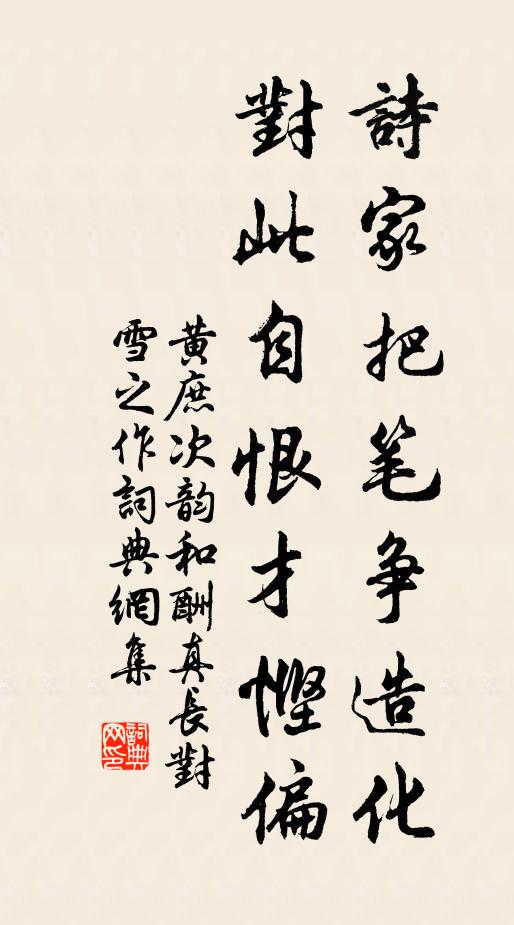 詩家把笔争造化
對此自恨才慳偏
黄庶次韵和酬真長對
雪之作詞典網集
詞典网印